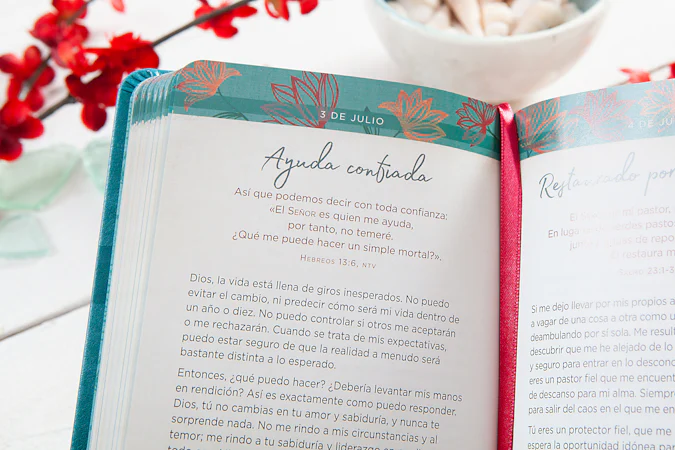 3 DE JULIO
Ayuda confiada
Así que podemos decir con toda confianza:
«El SEÑOR es quien me ayuda,
por tanto, no temeré.
¿Qué me puede hacer un simple mortal?».
HEBREOS 13:6, NTV
Dios, la vida está llena de giros inesperados. No puedo
evitar el cambio, ni predecir cómo será mi vida dentro de
un año o diez. No puedo controlar si otros me aceptarán
o me rechazarán. Cuando se trata de mis expectativas,
puedo estar seguro de que la realidad a menudo será
bastante distinta a lo esperado.
Entonces, ¿qué puedo hacer? ¿Debería levantar mis manos
en rendición? Así es exactamente como puedo responder.
Dios, tú no cambias en tu amor y sabiduría, y nunca te
sorprende nada. No me rindo a mis circunstancias y al
temor; me rindo a tu sabiduría y liderazgo
Restaurado por
pastor,
En lugares
El
restaura m
Si me dejo llevar por mis propios a
a vagar de una cosa a otra como u
deambulando por sí sola. Me result
descubrir que me he alejado de lo
y seguro para entrar en lo descono
eres un pastor fiel que me encuent
de descanso para mi alma. Siempre
para salir del caos en el que me en
Tú eres un protector fiel, que me
espera la oportunidad idónea par